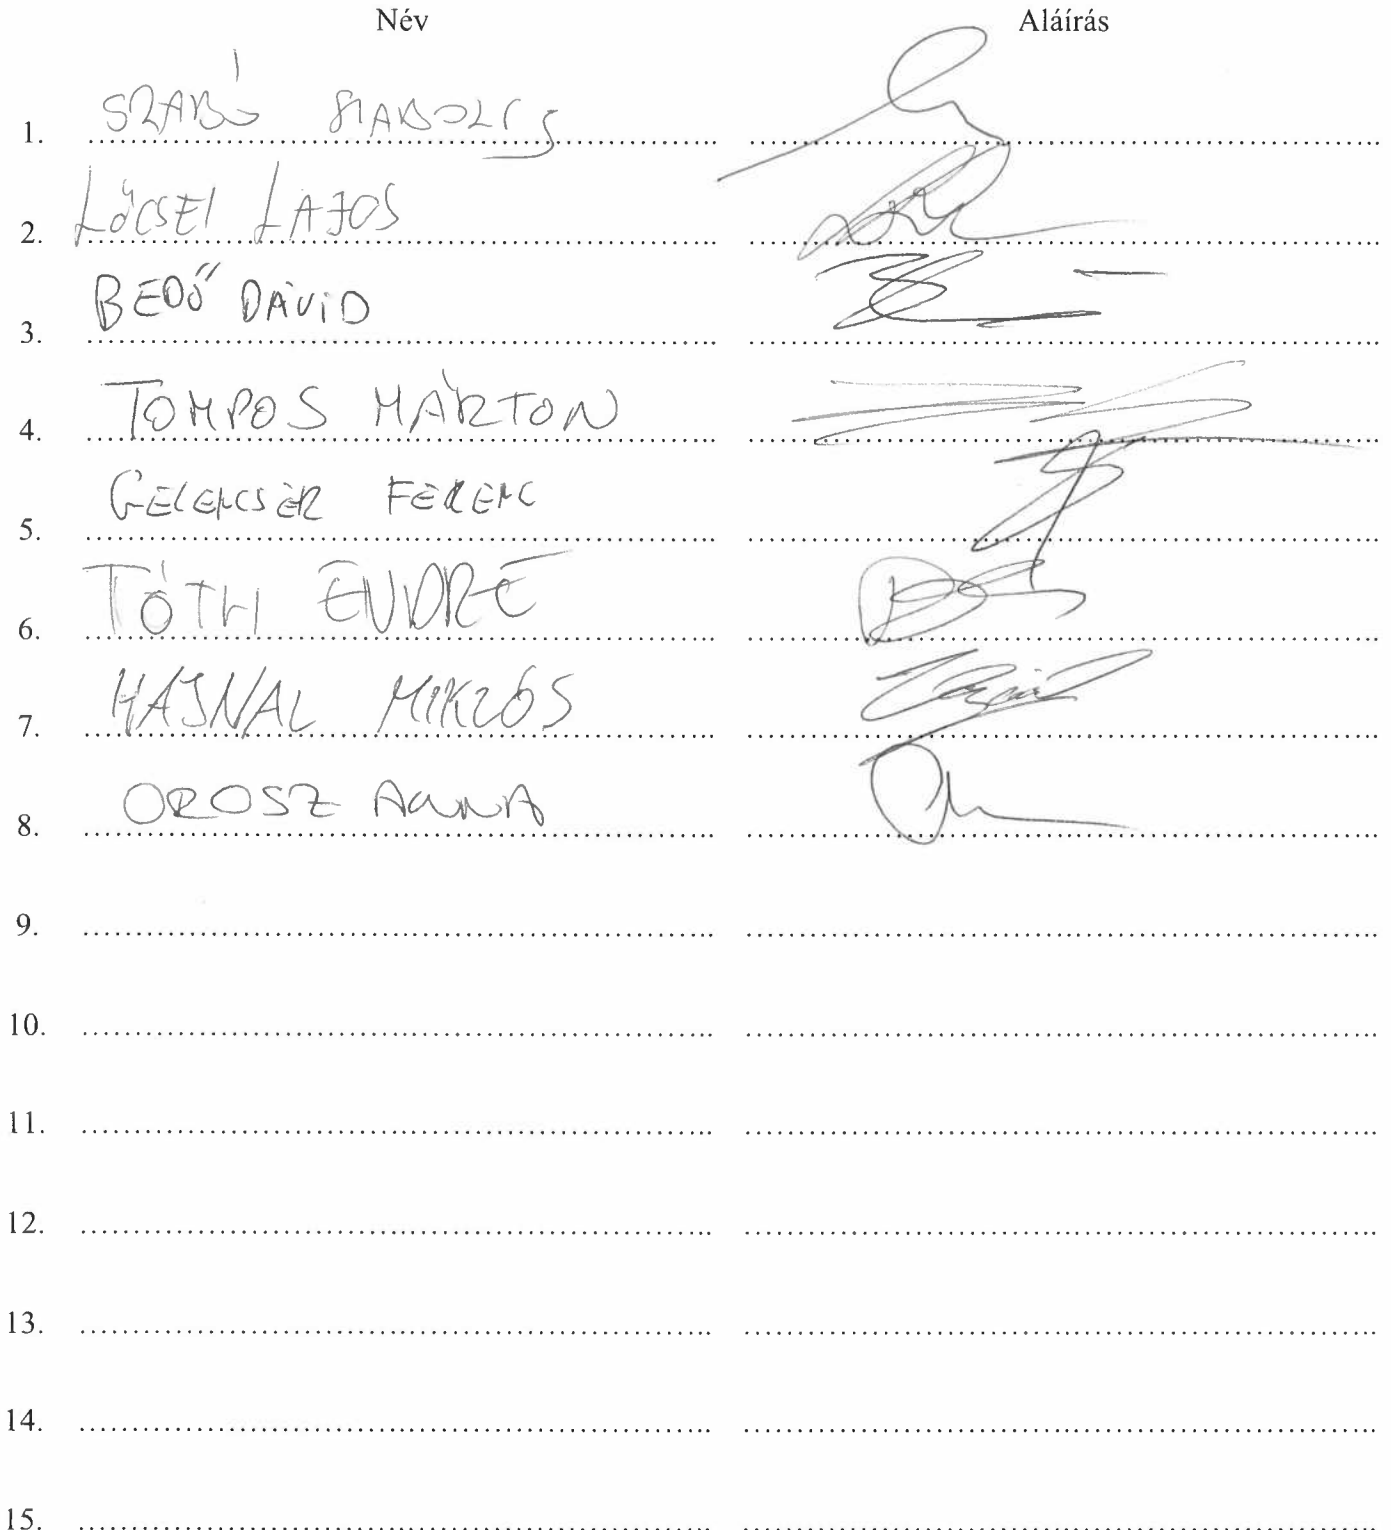 Név Aláírás
1. SZABÓ SZABOLCS
2. LŐCSEI LAJOS
3. BEDŐ DÁVID
4. TOMPOS MÁRTON
5. GELENCSÉR FERENC
6. TÓTH ENDRE
7. HAJNAL MIKLÓS
8. OROSZ ANNA
9.
10.
11.
12.
13.
14.
15.